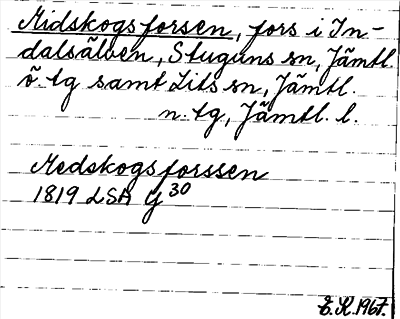 Midskogsforsen, fors i In-
dalsälven, Stuguns sn, Jämtl.
ö. tg samt Lits sn, Jämtl.
n. tg, Jämtl. l.
Medskogsforssen
1819 LSA G 30
E. K. 1967.